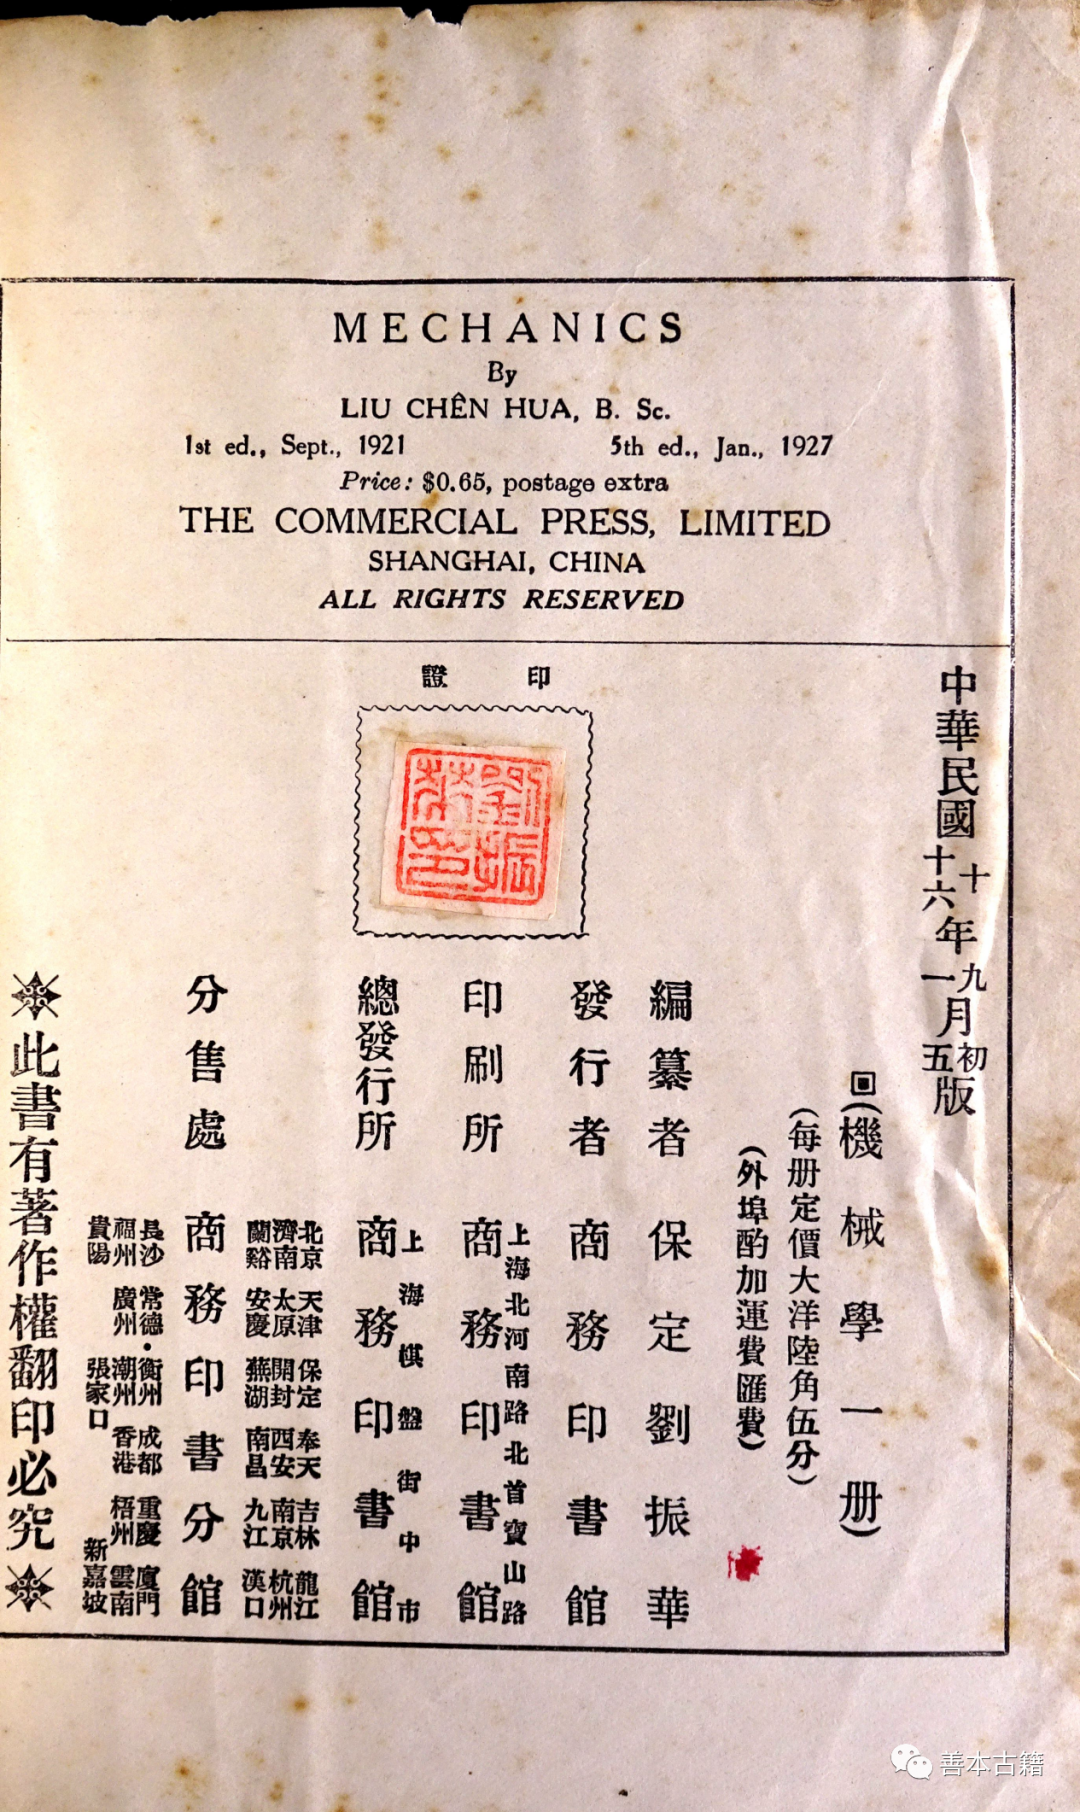 MECHANICS
By
LIU CHÊN HUA, B. Sc.
1st ed., Sept., 1921 5th ed., Jan., 1927
Price: $0.65, postage extra
THE COMMERCIAL PRESS, LIMITED
SHANGHAI, CHINA
ALL RIGHTS RESERVED
印證
劉振華印
中華民國十年九月初版
十六年一月五版
(機械學一册)
(每册定價大洋陸角伍分)
(外埠酌加運費匯費)
編纂者 保定劉振華
發行者 商務印書館
印刷所 上海北河南路北首寶山路 商務印書館
總發行所 上海棋盤街中市 商務印書館
分售處 商務印書分館
北京 天津 保定 奉天 吉林 龍江
濟南 太原 開封 西安 南京 杭州
蘭谿 安慶 蕪湖 南昌 九江 漢口
長沙 常德 衡州 成都 重慶 廈門
福州 廣州 潮州 香港 梧州 雲南
貴陽 張家口 新嘉坡
此書有著作權翻印必究
善本古籍